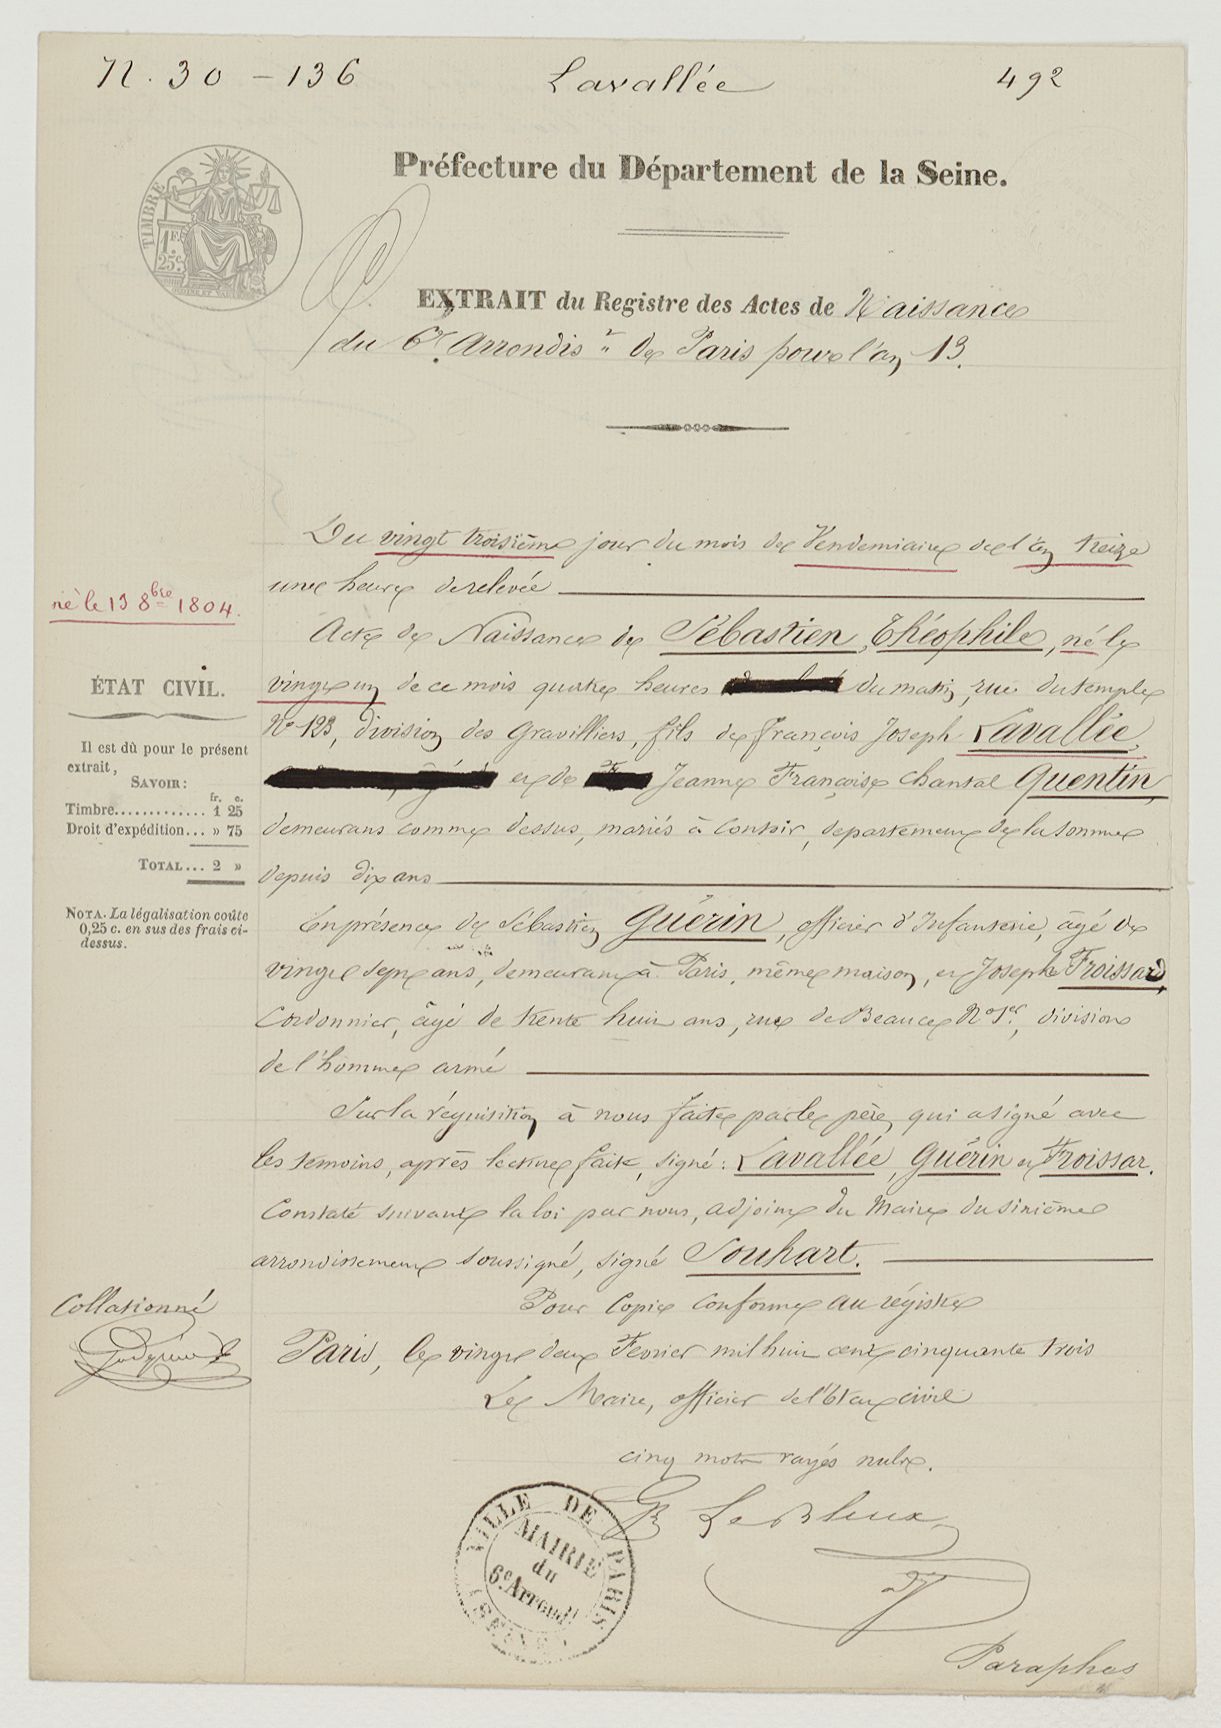 N. 30 - 136 Lavallée 492
Préfecture du Département de la Seine.
TIMBRE
1 F.
25 c.
EXTRAIT du Registre des Actes de Naissance
du 6e Arrondisr de Paris pour l'an 13.
Du vingt troisième jour du mois de Vendemiaire de l'an treize
une heure de relevée
né le 13 8bre 1804.
Acte de Naissance de Sébastien, Théophile, né le
vingt un de ce mois quatre heures du matin, rue du temple
No 123, division des Gravilliers, fils de François Joseph Lavallée,
et de Jeanne Françoise Chantal Quentin,
demeurans comme dessus, mariés à Contoir, departement de la Somme
depuis dix ans
ÉTAT CIVIL.
Il est dû pour le présent
extrait,
SAVOIR:
fr. c.
Timbre............. 1 25
Droit d'expédition... » 75
TOTAL... 2 »
NOTA. La légalisation coûte
0,25 c. en sus des frais ci-
dessus.
En présence de Sébastien Guérin, officier d'Infanterie, âgé de
vingt sept ans, demeurant à Paris, même maison, et Joseph Froissard,
Cordonnier, âgé de trente huit ans, rue de Beauce No 1er, division
de l'homme armé
Sur la réquisition à nous faite par le père, qui a signé avec
les temoins, après lecture faite, signé: Lavallée, Guérin et Froissar.
Constaté suivant la loi par nous, adjoint du Maire du sixième
arrondissement soussigné, signé Souhart.
Pour Copie conforme au régistre
Collationné
Paris, le vingt deux Fevrier mil huit cent cinquante trois
Le Maire, officier de l'Etat civil
cinq mots rayés nuls.
Le Bleux
VILLE DE PARIS
MAIRIE
du
6e Arrondt
(SEINE)
Paraphes